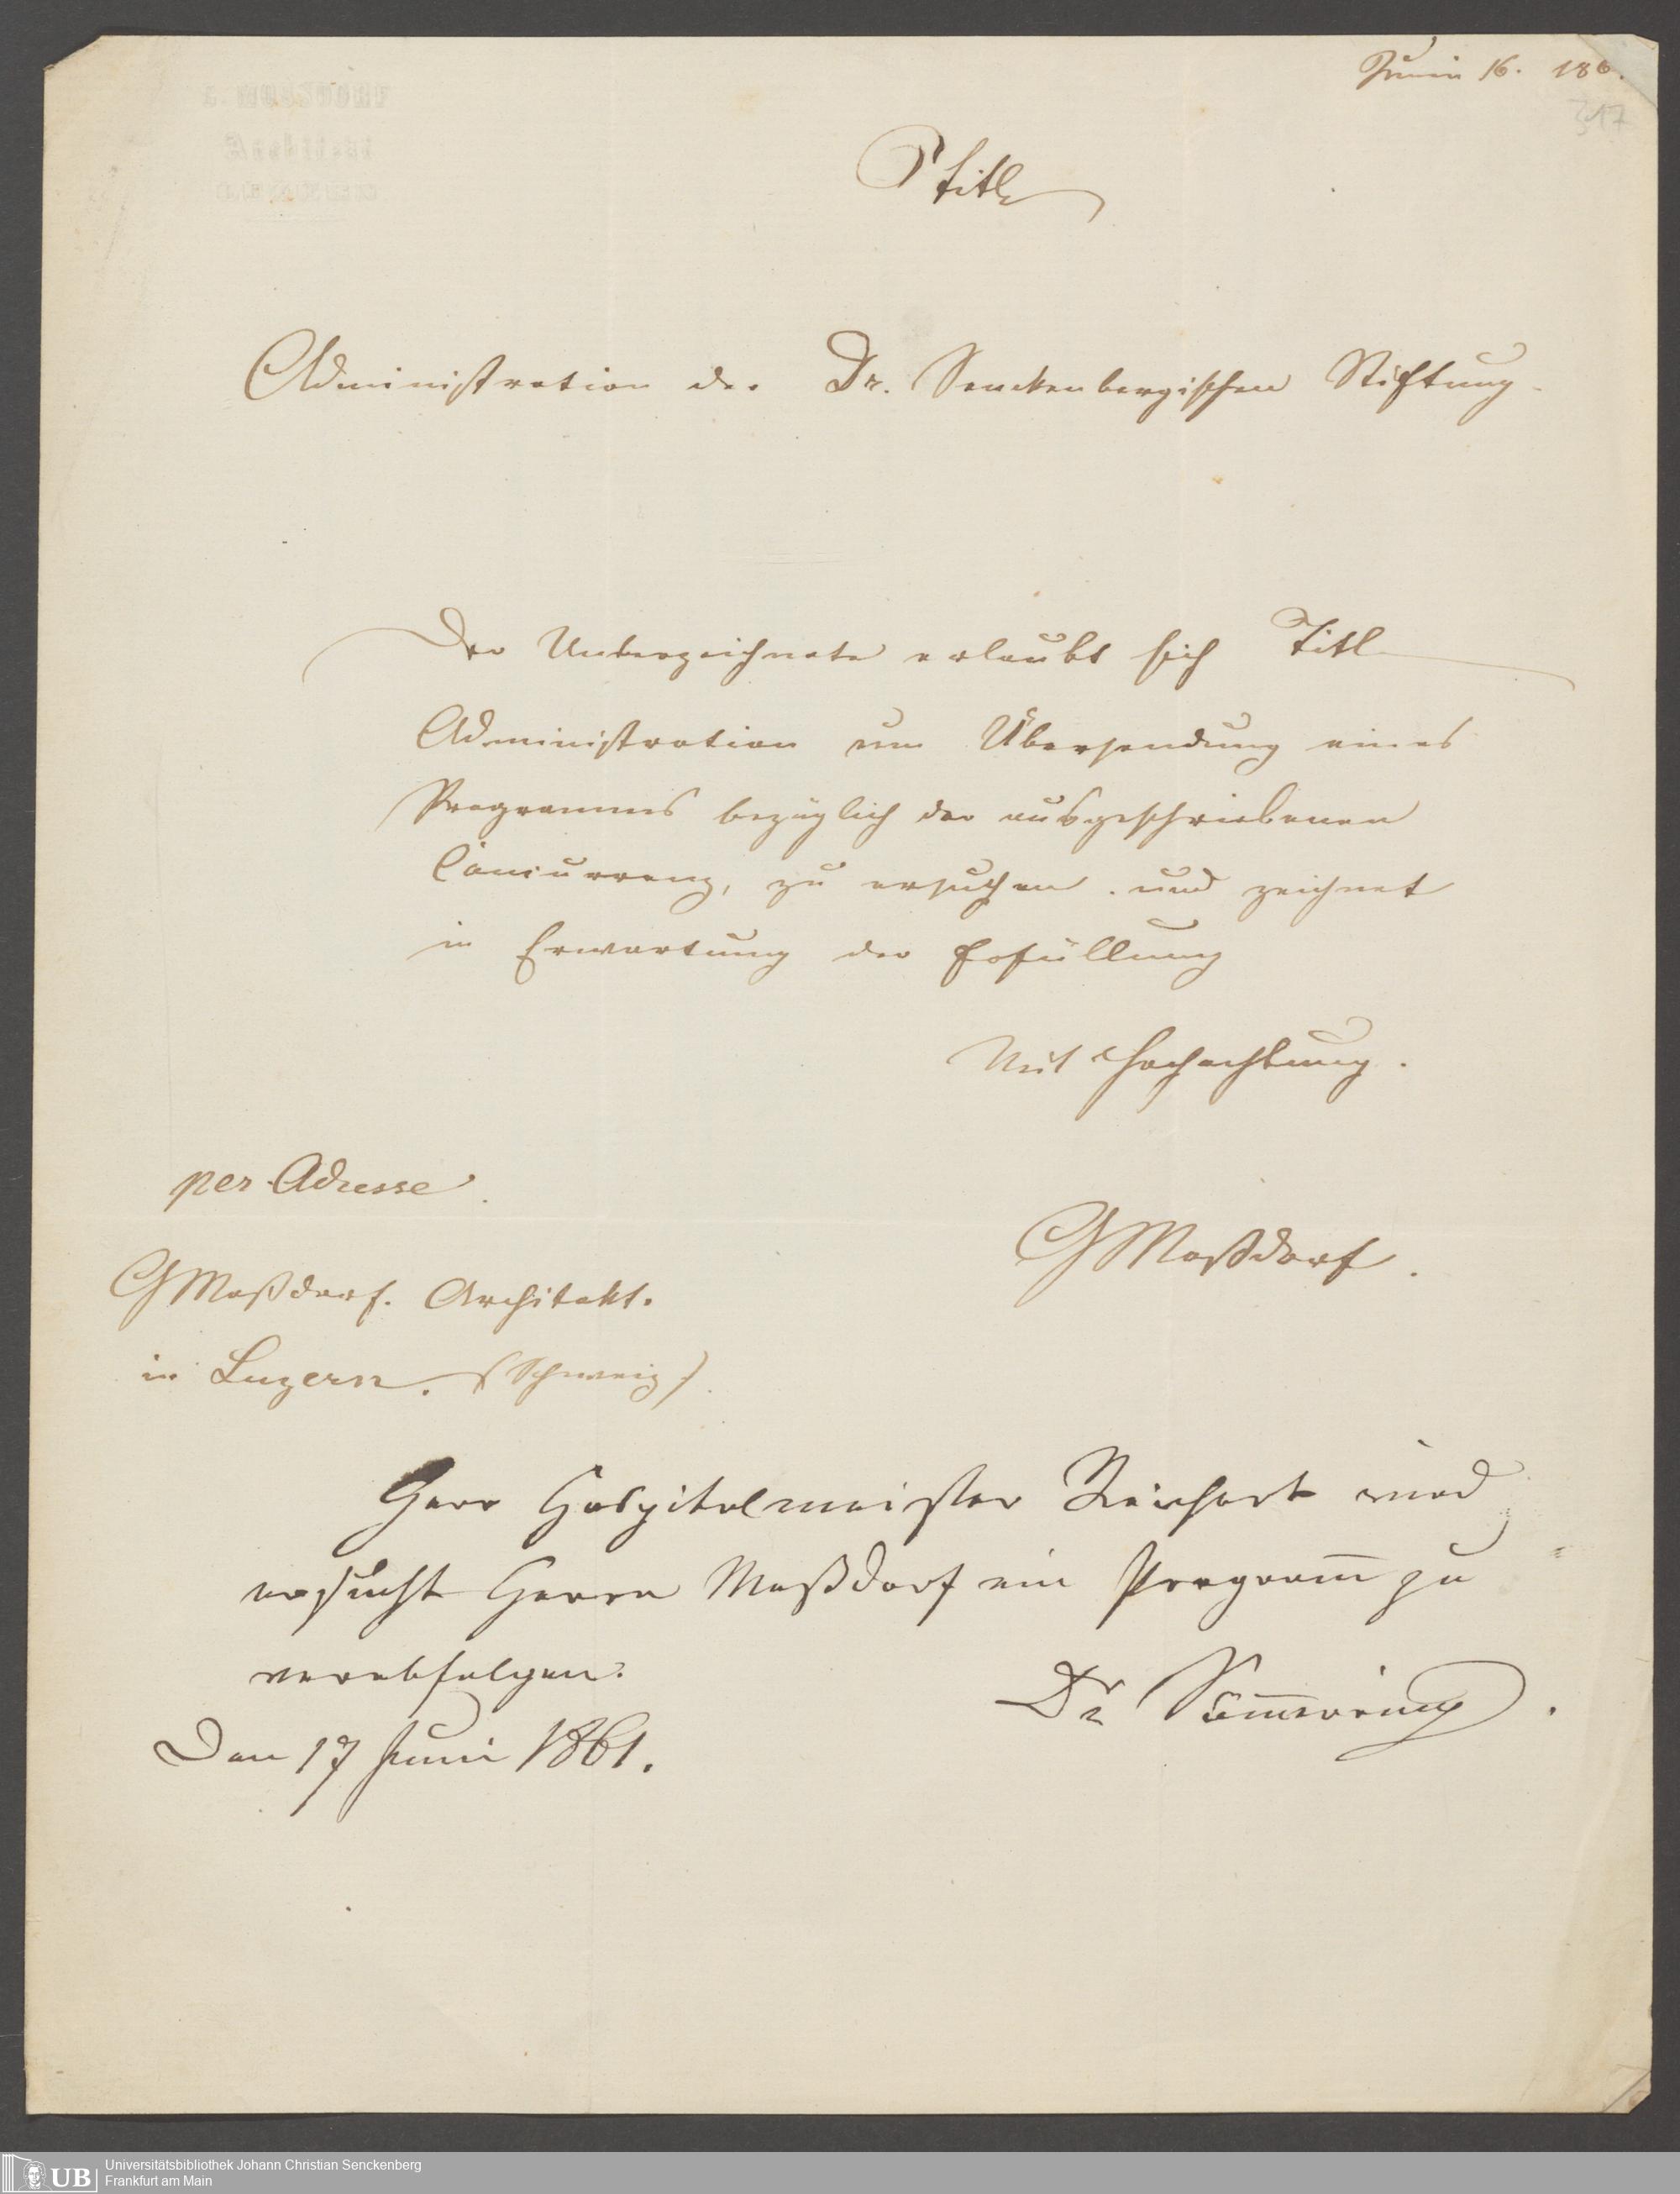 Juni 16. 186
317
G. MOSSDORF
Architect
P titl
Administration der Dr. Senckenbergischen Stiftung.
Der Unterzeichnete erlaubt sich Titl
Administration um Übersendung eines
Programmes bezüglich der ausgeschriebenen
Concurrenz, zu ersuchen. und zeichnet
in Erwartung der Erfüllung
Mit Hochachtung.
per Adresse
GMoßdorf.
GMoßdorf. Architekt.
in Luzern. (Schweiz)
Herr Hospitalmeister Reichart wird
ersucht Herrn Moßdorf ein Program̅ zu
verabfolgen.
Dr Söm̅ering.
Den 17 Juni 1861.
UB
Universitätsbibliothek Johann Christian Senckenberg
Frankfurt am Main